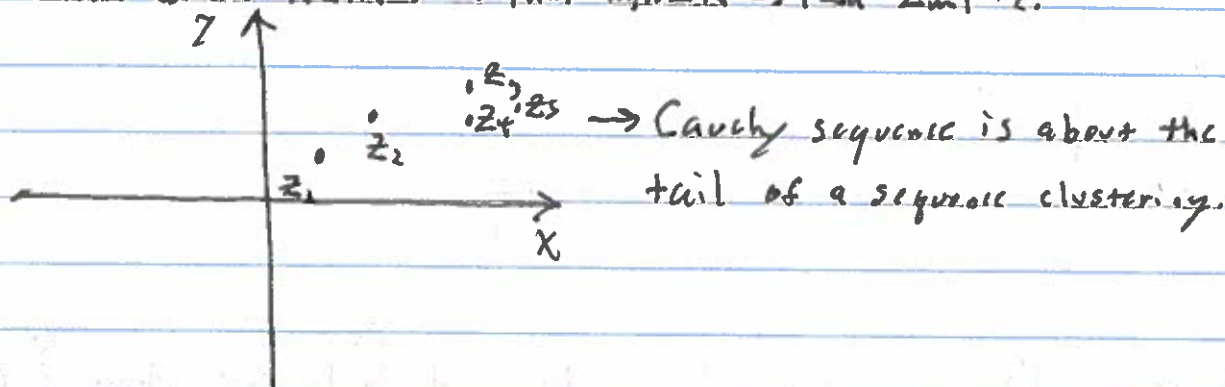 Z
Z₃
Z₄ Z₅ → Cauchy sequence is about the
Z₂
Z₁ tail of a sequence clustering.
X